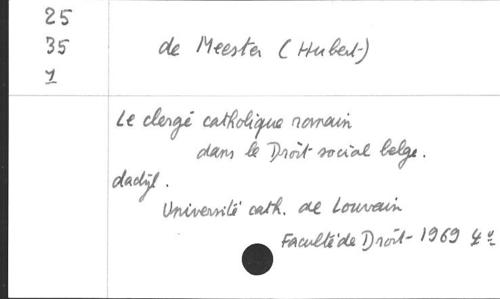 25
35
1
de Meester (Hubert)
Le clergé catholique romain
dans le Droit social belge.
dactyl.
Université cath. de Louvain
Faculté de Droit - 1969 4º